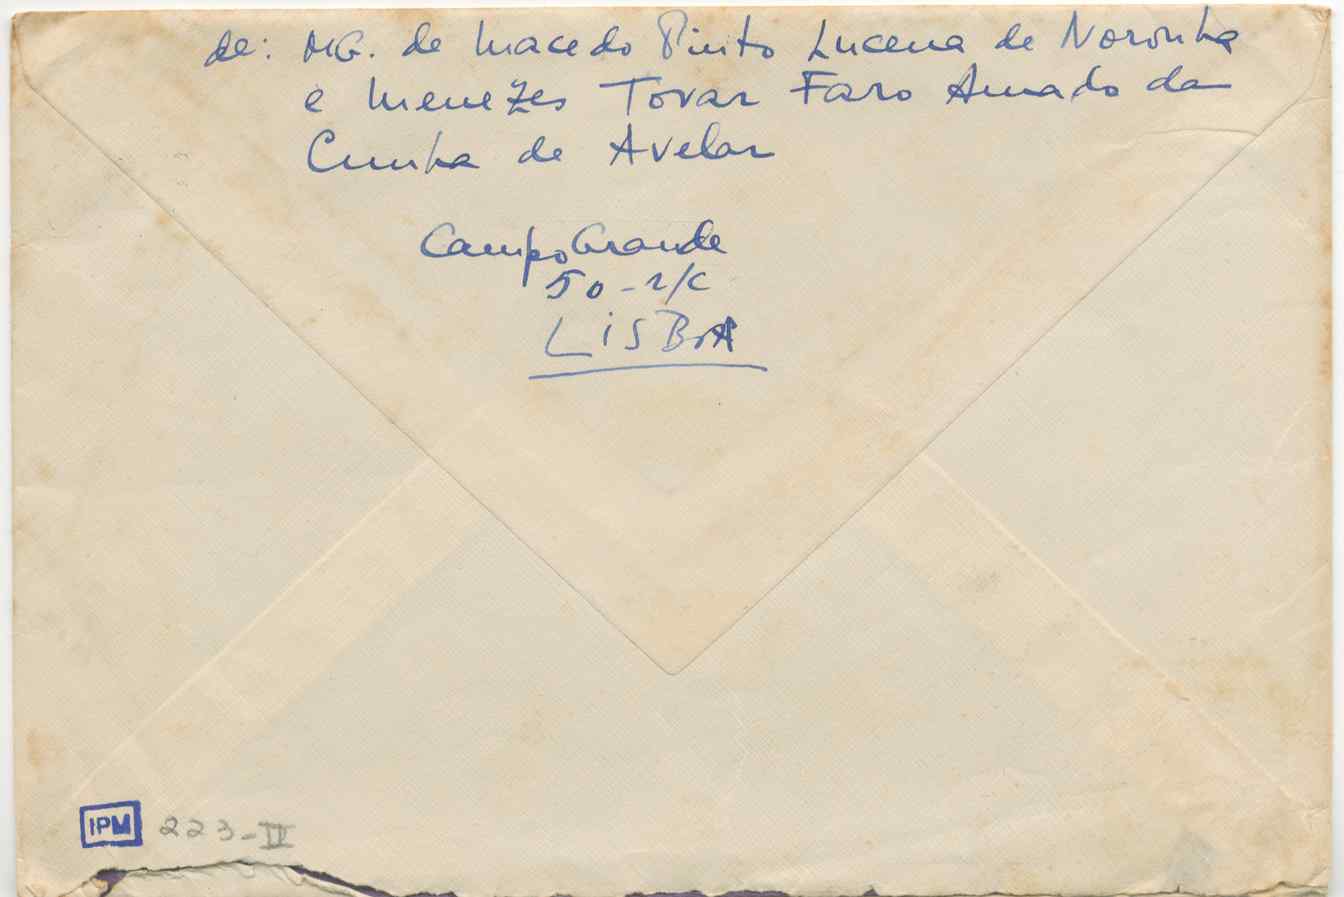 de: MG. de Macedo Pinto Lucena de Noronha
e Menezes Tovar Faro Amado da
Cunha de Avelar
Campo Grande
50-r/c
LISBOA
IPM 223-II